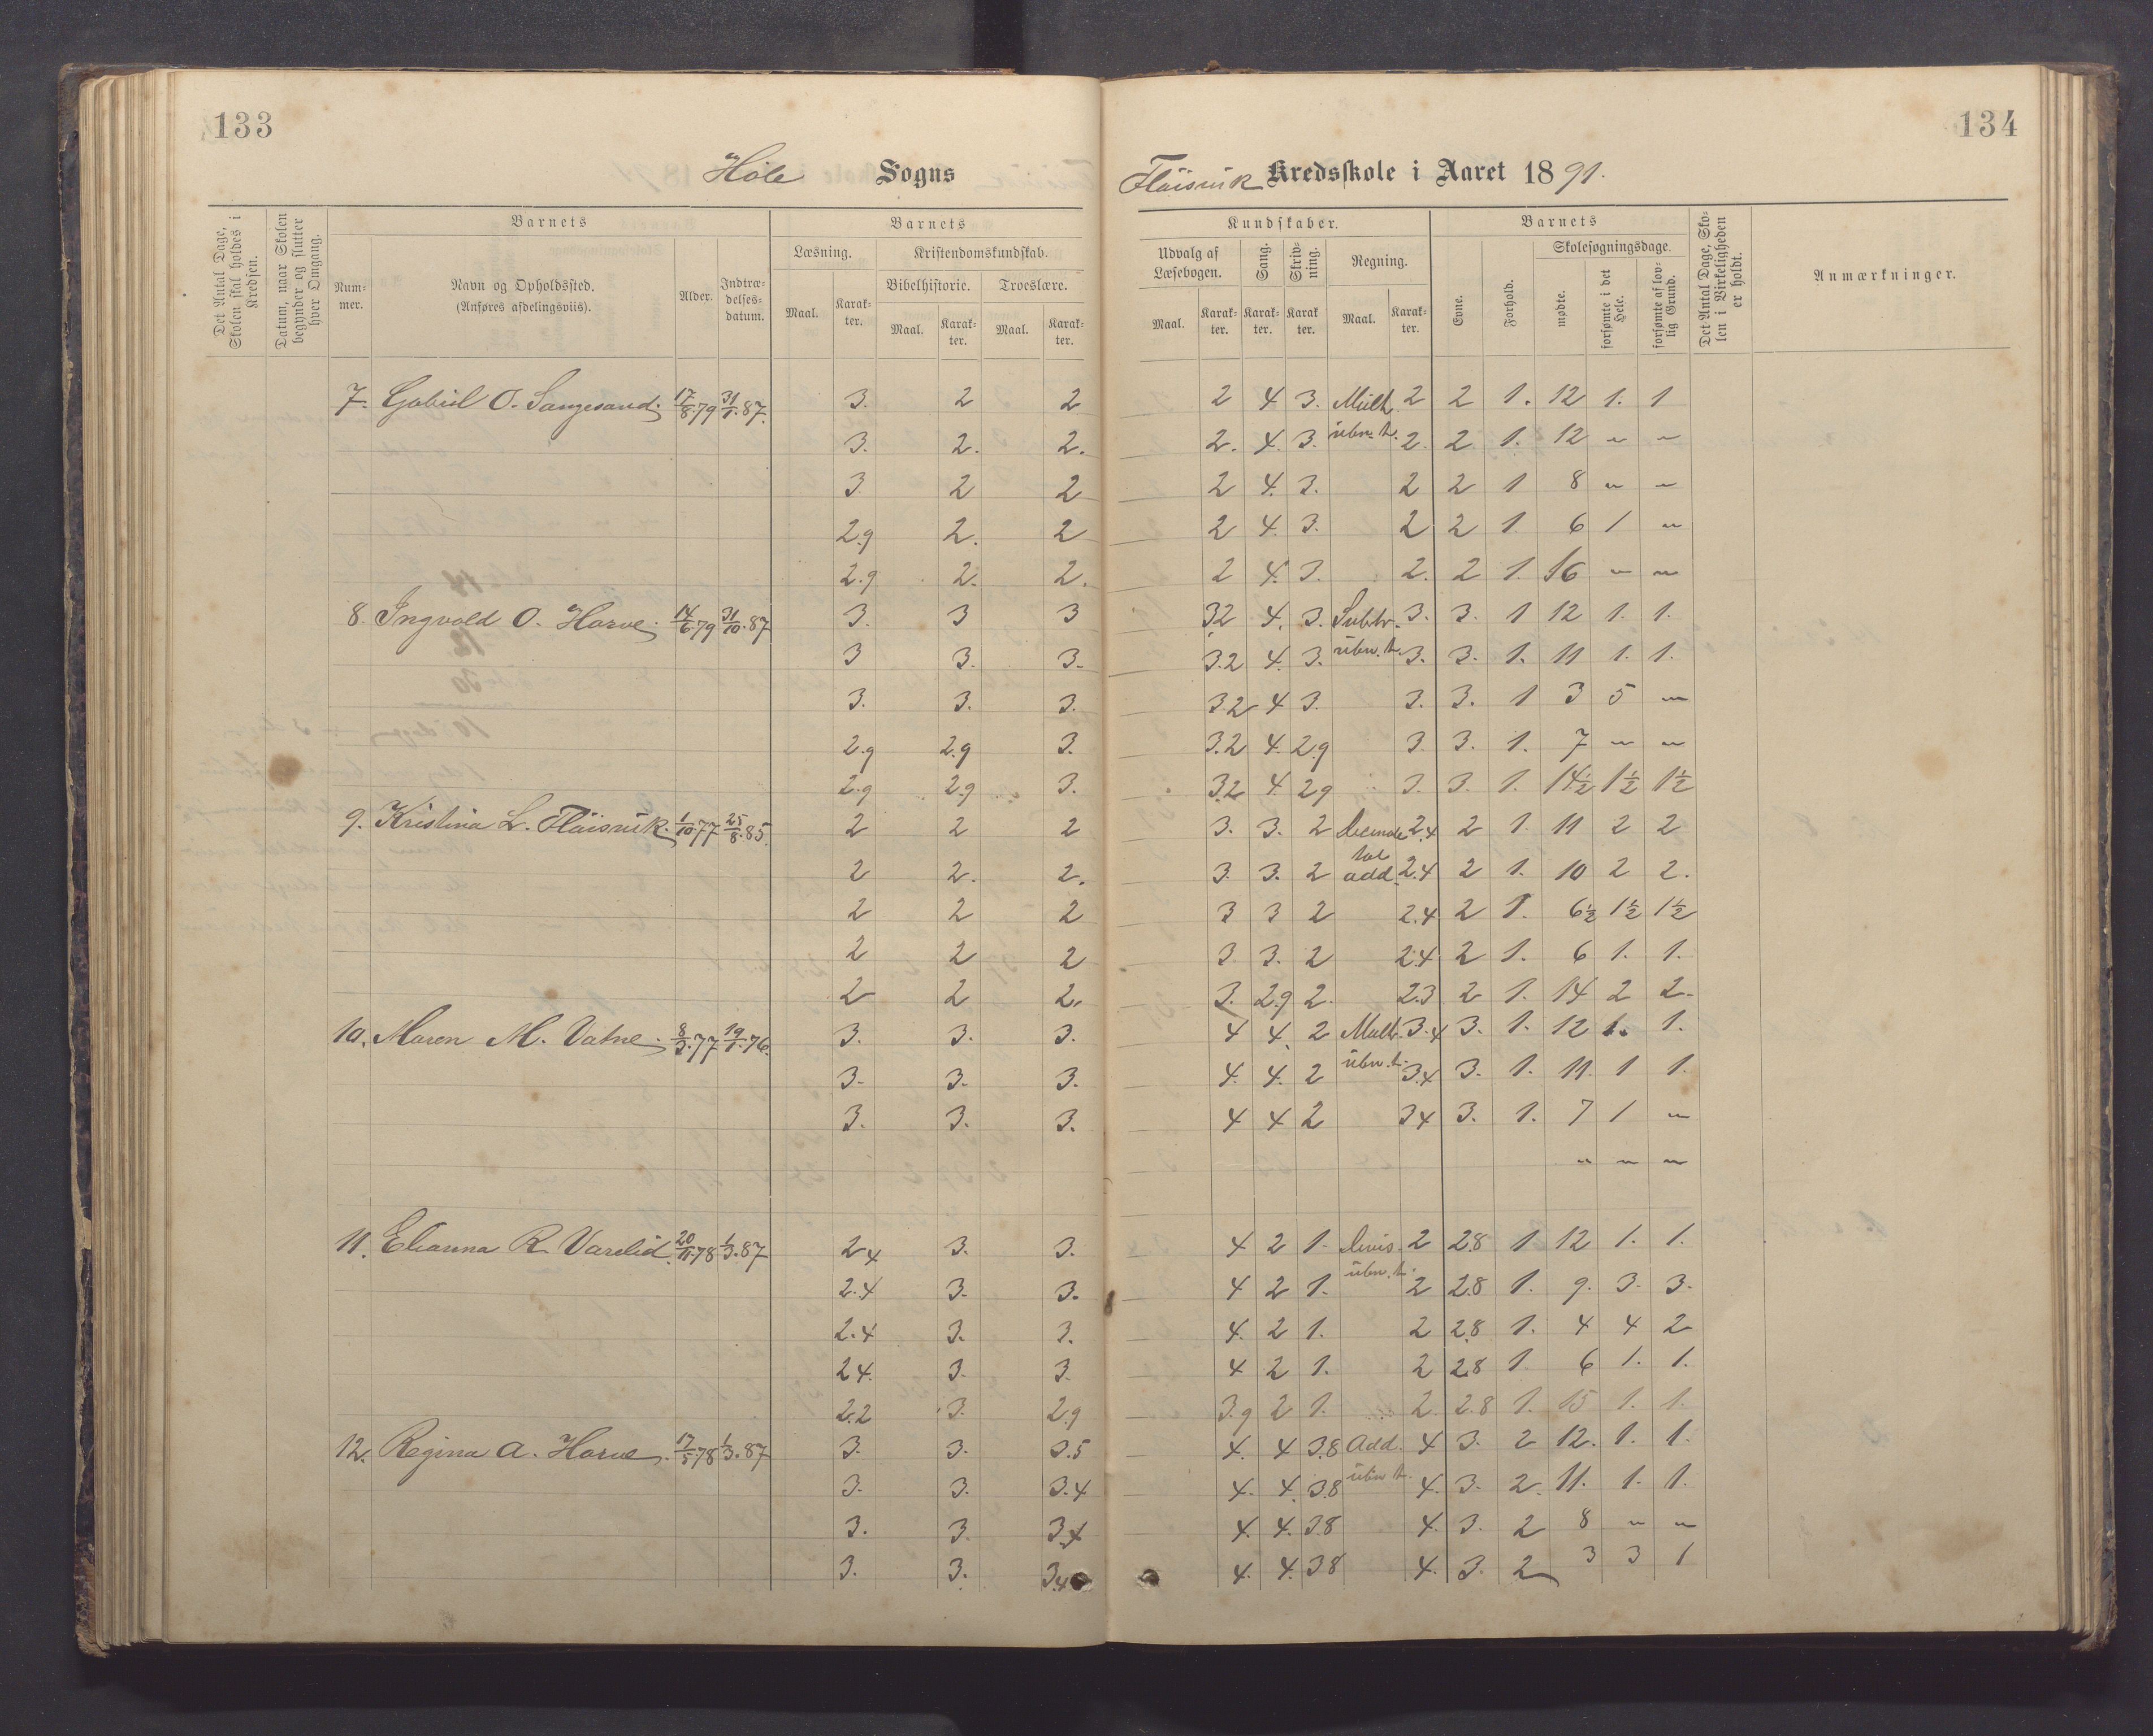 133
134
Høle Sogns
Fløisvik Kredsskole i Aaret 1891.
Det Antal Dage, Skolen skal holdes i Kredsen.
Datum, naar Skolen begynder og slutter hver Omgang.
Barnets
Nummer.
Navn og Opholdssted.
(Anføres afdelingsviis).
Alder.
Indtrædelsesdatum.
Barnets
Læsning.
Maal.
Karakter.
Kristendomskundskab.
Bibelhistorie.
Maal.
Karakter.
Troeslære.
Maal.
Karakter.
Kundskaber.
Udvalg af Læsebogen.
Maal.
Karakter.
Sang.
Karakter.
Skrivning.
Karakter.
Regning.
Maal.
Karakter.
Barnets
Evne.
Forhold.
Skolesøgningsdage.
mødte.
forsømte i det Hele.
forsømte af lovlig Grund.
Det Antal Dage, Skolen i Virkeligheden er holdt.
Anmærkninger.
7. Gabriel O. Sangesand. 17/8.79 31/1.87. 3. 2 2 2 4 3. Mult. 2 2 1. 12 1. 1
3. 2. 2. 2. 4. 3. ubn. t. 2. 2 1. 12 " "
3 2 2 2 4. 3. 2 2 1 8 " "
2.9 2. 2 2 4. 3. 2 2 1 6 1 "
2.9 2. 2. 2 4. 3. 2. 2 1. 16 " "
8. Ingvald O. Horve. 14/6.79 31/10.87 3. 3 3 32 4. 3. Subtr. 3. 3. 1 12 1. 1.
3 3. 3. 3.2 4. 3. ubn. t. 3. 3. 1. 11 1. 1.
3. 3. 3. 3.2 4 3. 3. 3. 1 3 5 "
2.9 2.9 3. 3.2 4. 2.9 3. 3. 1. 7 " "
2.9 2.9 3. 3.2 4 29 3. 3. 1. 14½ 1½ 1½
9. Kristina L. Fløisvik. 1/10.77 25/8.85. 2 2 2 3. 3. 2 2.4 2 1. 11 2 2
2 2. 2. 3. 3. 2 add. 2.4 2 1. 10 2 2.
2 2 2 3 3 2 2.4 2 1. 6½ 1½ 1½
2 2 2 3. 3. 2 2.4 2 1. 6 1. 1.
2 2 2. 3. 2.9 2. 2.3 2 1. 14 2 2.
10. Maren M. Vatne. 8/3.77 19/1.76. 3. 3. 3. 4 4. 2 Mult. 3.4 3. 1. 12 1. 1.
3. 3. 3. 4. 4. 2 ubn. t. 3.4 3. 1. 11. 1 1.
3. 3. 3. 4 4 2 34 3. 1. 7 1 "
" " "
11. Elianna R. Varelid. 20/11.78 1/3.87 24 3. 3. 4 2 1. Divis. 2 28 1 12 1. 1.
2.4 3. 3. 4 2 1. ubn. t. 2 28 1. 9. 3. 3.
2.4 3. 3. 4. 2 1. 2 2.8 1. 4 4 2
24. 3. 3. 4 2 1. 2 2.8 1. 6 1. 1.
2.2 3. 2.9 3.9 2 1. 2. 2.8 1. 15 1. 1.
12. Regina A. Horve. 17/5.78 1/3.87 3. 3. 3.5 4. 4 3.8 Add. 4 3. 2 12. 1. 1.
3. 3. 3.4 4. 4. 3.8 ubn. t. 4. 3. 2. 11. 1. 1.
3. 3. 3.4 4. 4. 3.8 4. 3. 2 8 " "
3. 3. 3.4 4. 4. 38 4. 3. 2 3 3 1